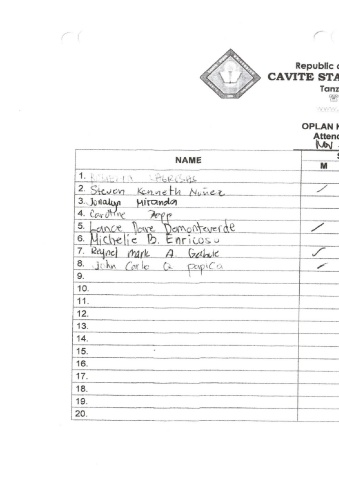 Republic
CAVITE STA
Tanz
OPLAN K
Attend
Nov
NAME
S
M
1.
2. Steven Kenneth Nuñez
3. Jonalyn Miranda
4. Caroline Zepp
5. Lance Dave Damonteverde
6. Michelle B. Enricoso
7. Reynel Mark A.
8. John Carlo Q. Papica
9.
10.
11.
12.
13.
14.
15.
16.
17.
18.
19.
20.